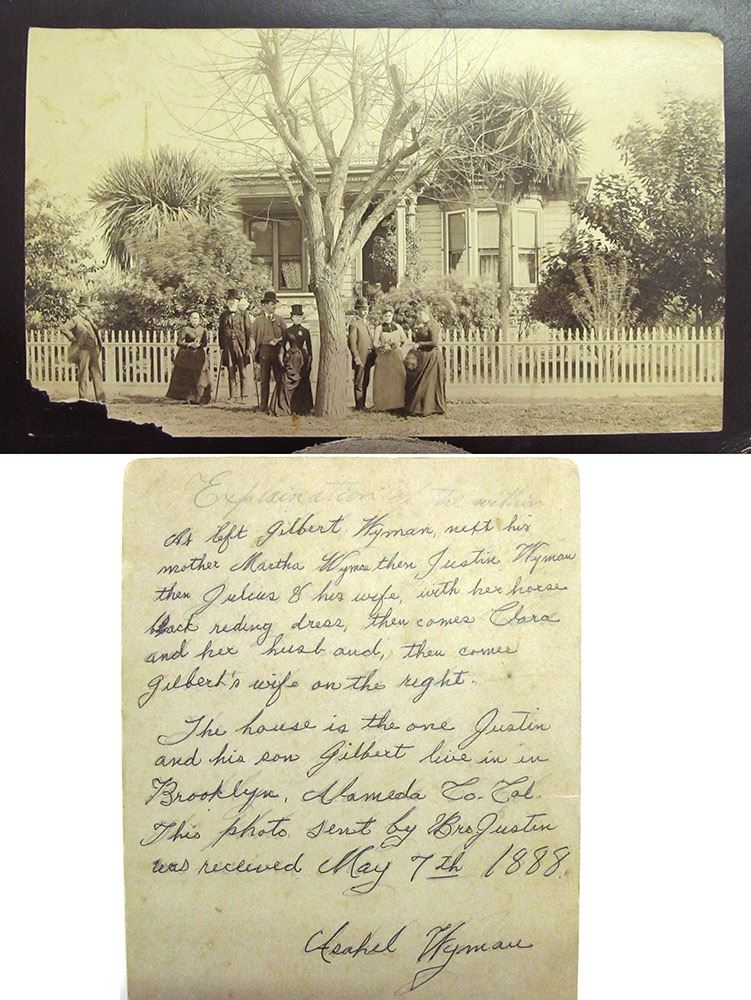 Explaination of the within
At left Gilbert Wyman, next his
mother Martha Wyman then Justin Wyman
then Julius & his wife, with her horse
back reding dress, then comes Clara
and her husband, then comes
Gilbert's wife on the right.
The house is the one Justin
and his son Gilbert live in in
Brooklyn, Alameda Co. Cal.
This photo sent by Bro Justin
was recieved May 7th 1888.
Asahel Wyman